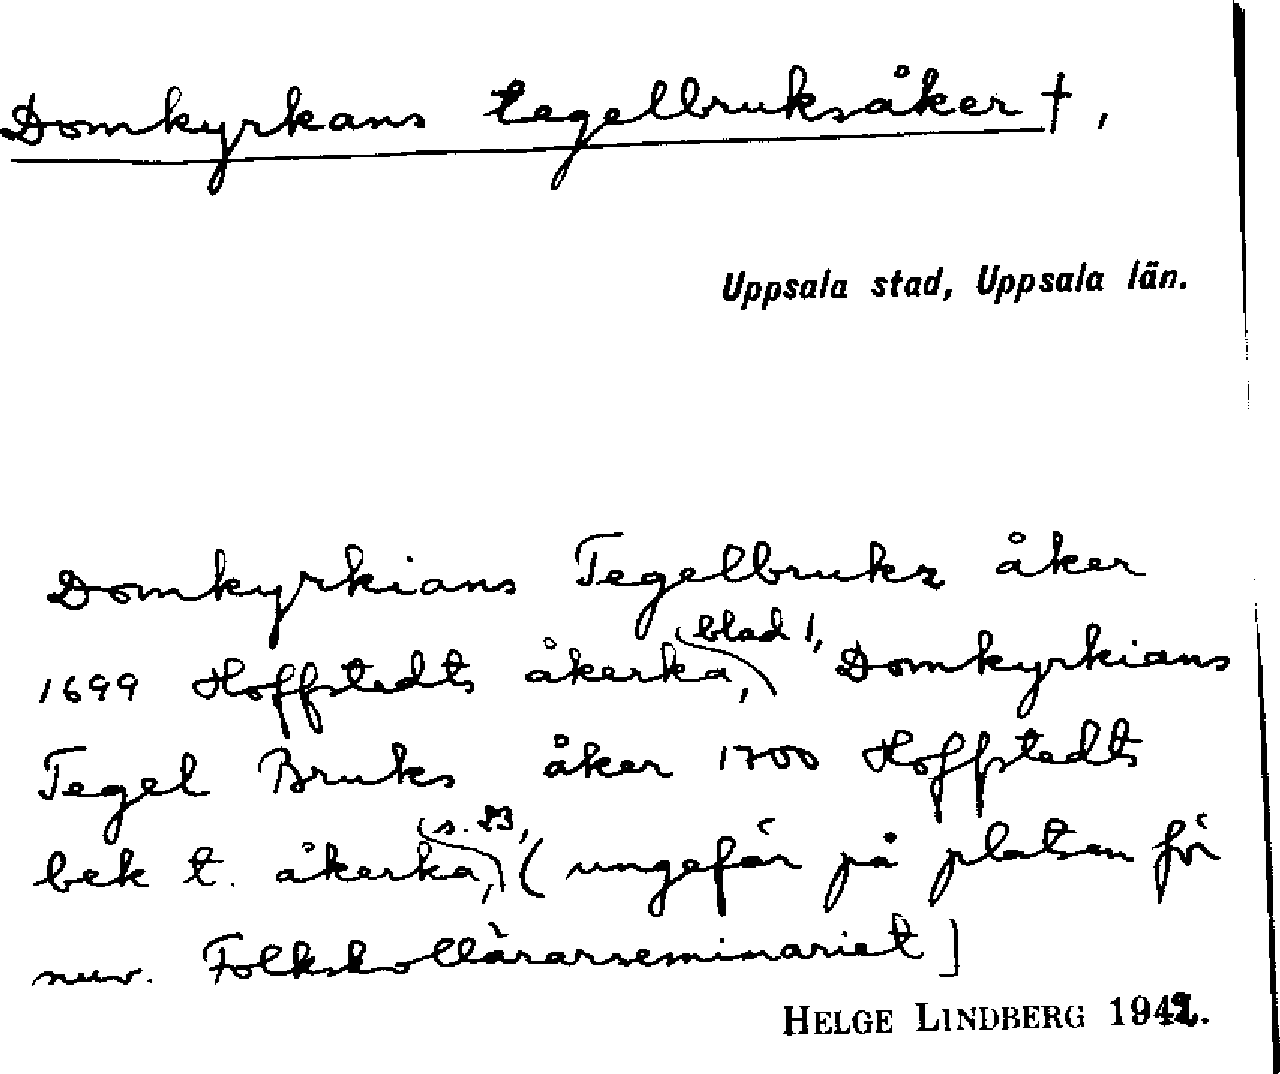 Domkyrkans tegelbruksåker †,
Uppsala stad, Uppsala län.
Domkyrkians Tegelbruks åker
1699 Hoffstedts åkerka, blad 1, Domkyrkians
Tegel Bruks åker 1700 Hoffstedts
bek t. åkerka, s. 23, (ungefär på platsen för
nuv. Folkskollärarseminariet]
HELGE LINDBERG 1942.